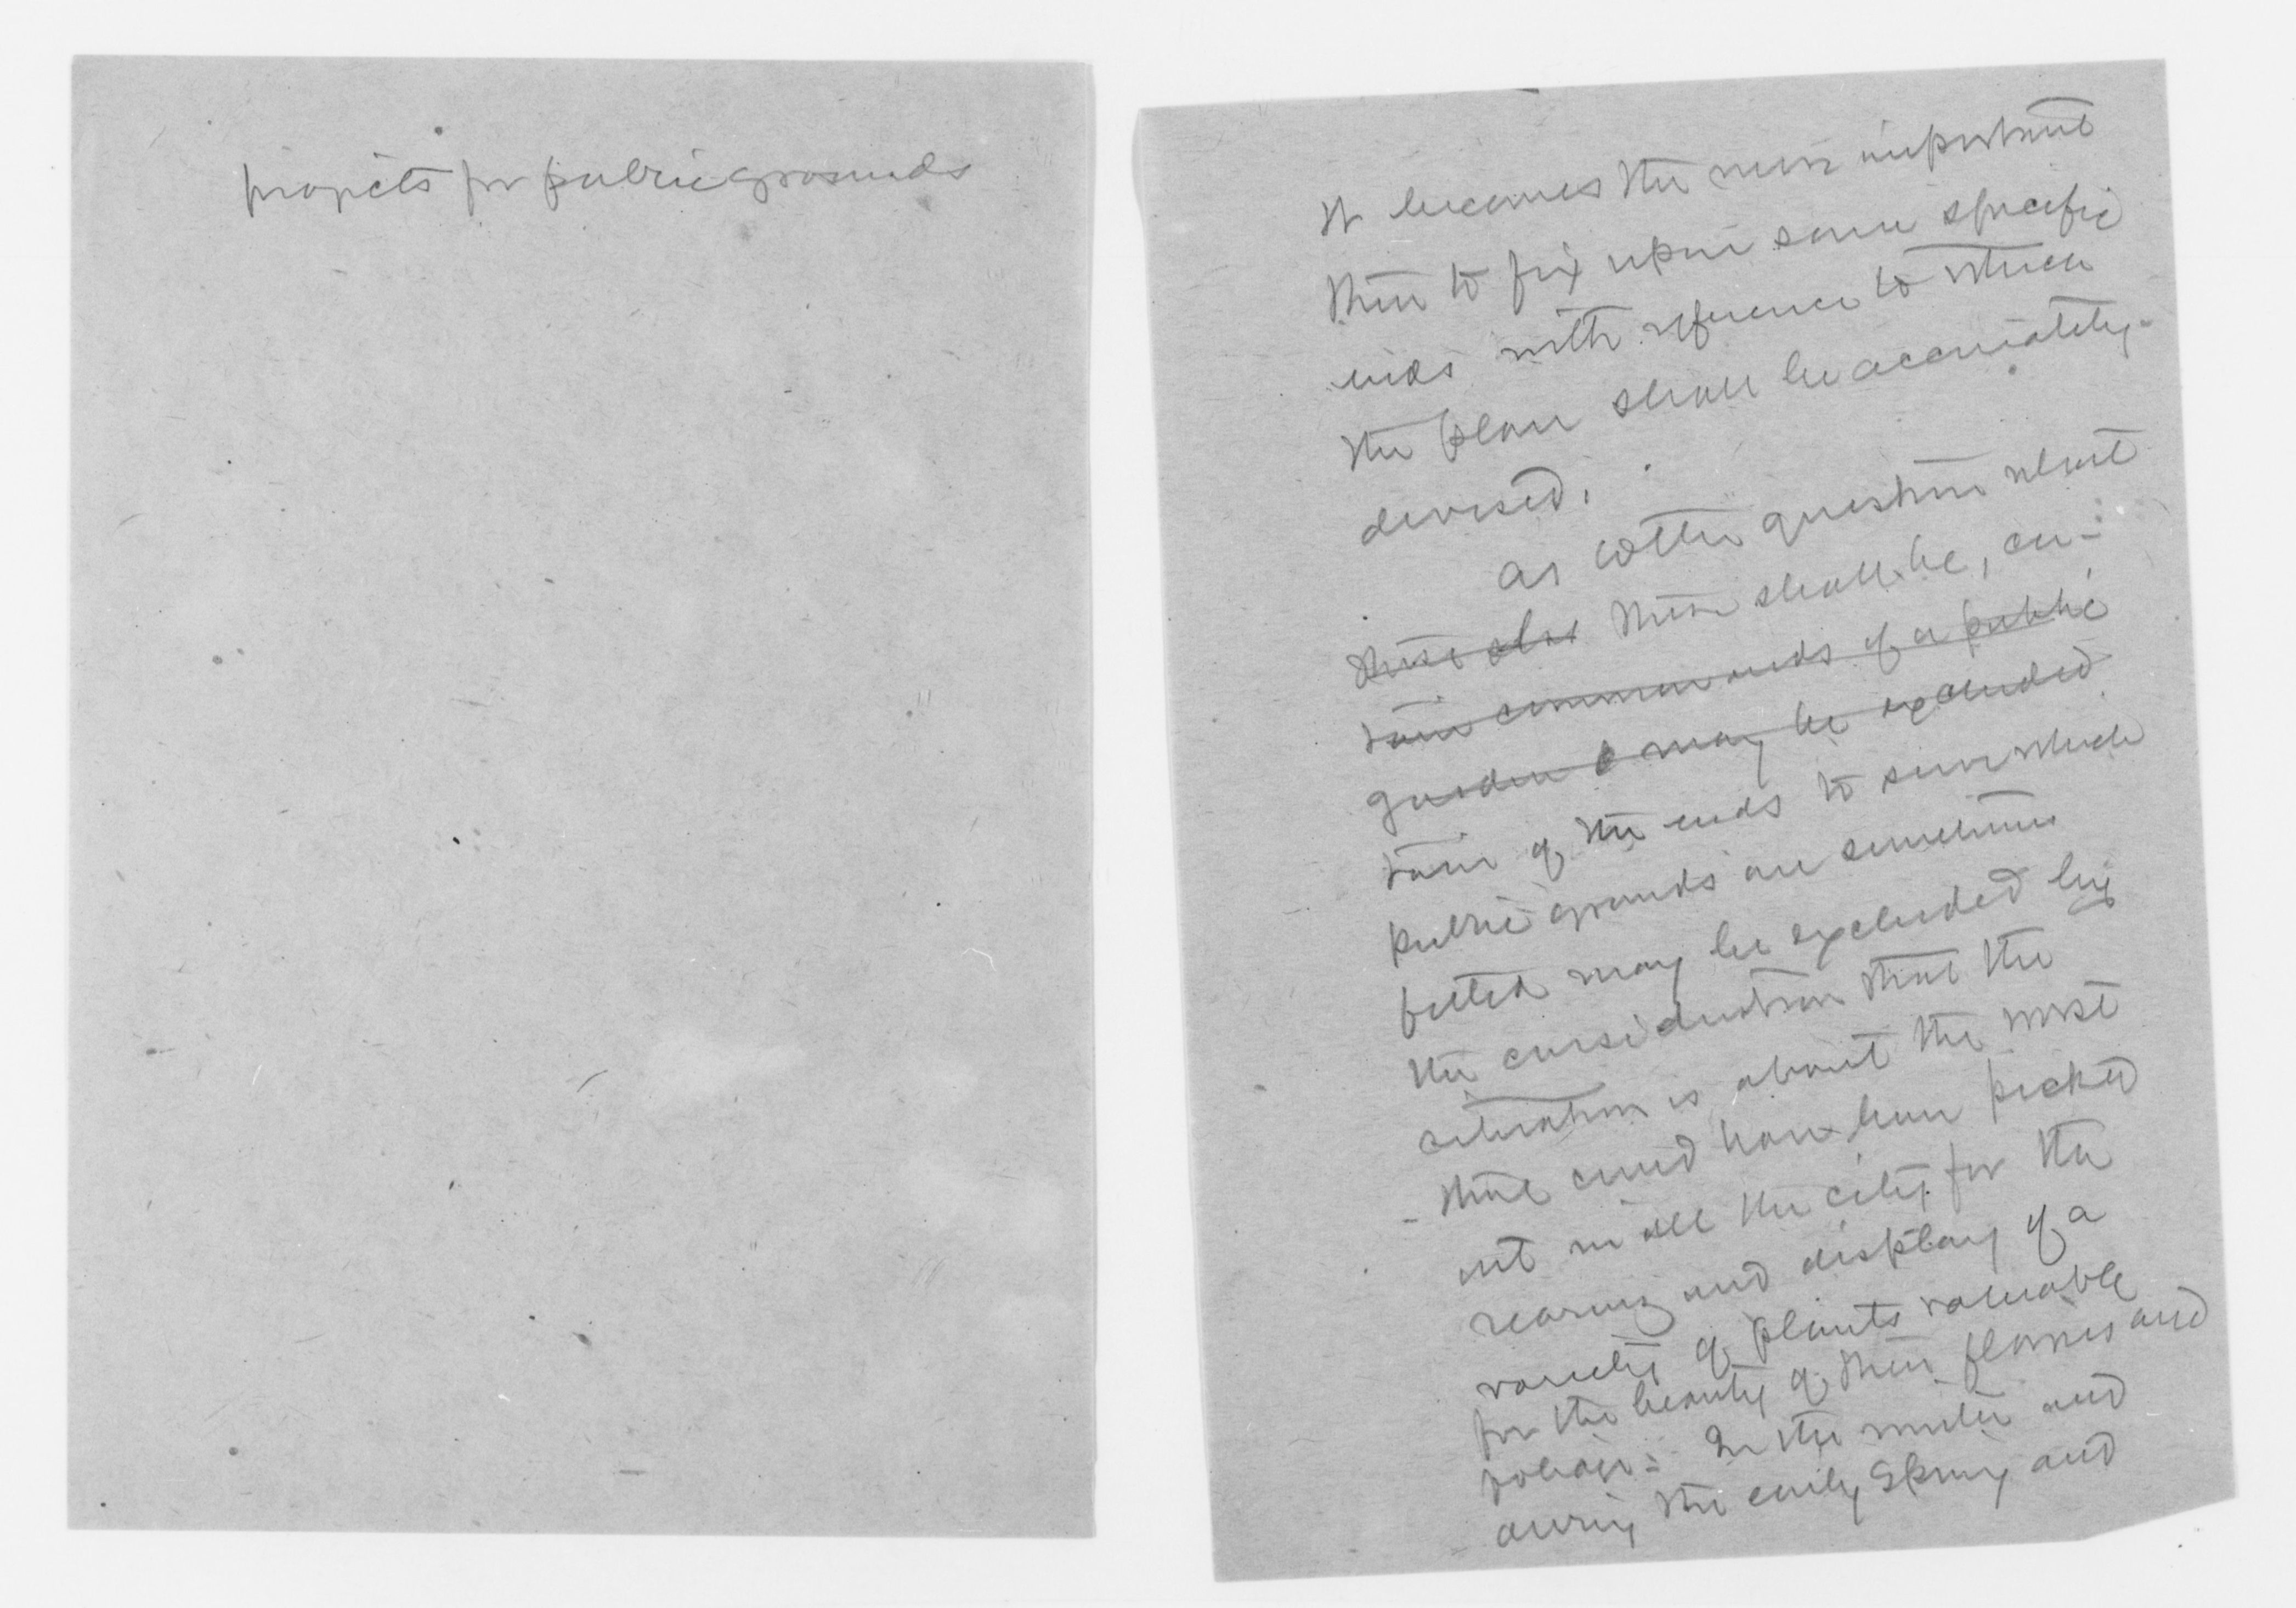 projects for public grounds
It becomes the more important
then to fix upon some specific
ends with reference to which
the plan shall be accurately
devised.
As to the question what
these shal these shall be, cer-
tain common ends of a public
garden may be excluded
tain of the ends to serve which
public grounds are sometimes
fitted may be excluded by
the consideration that the
situation is about the worst
that could have been picked
out in all the city for the
rearing and display of a
variety of plants valuable
for the beauty of their flowers and
foliage. In the winter and
during the early Spring and